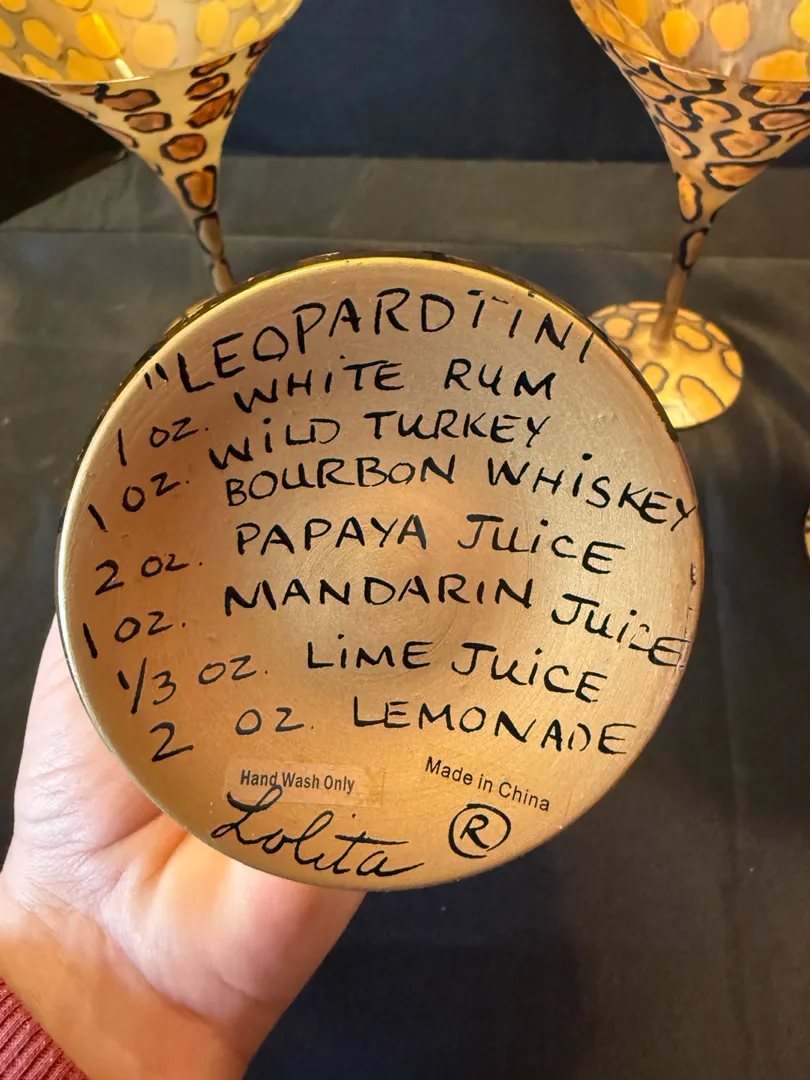 "LEOPARDTINI
1 OZ. WHITE RUM
1 OZ. WILD TURKEY
BOURBON WHISKEY
2 OZ. PAPAYA JUICE
1 OZ. MANDARIN JUICE
1/3 OZ. LIME JUICE
2 OZ. LEMONADE
Hand Wash Only
Made in China
Lolita ®